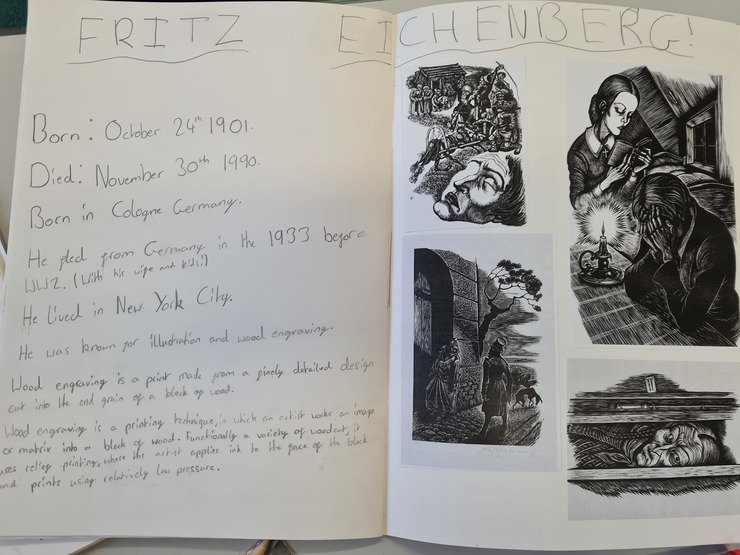 FRITZ EICHENBERG!
Born: October 24th 1901.
Died: November 30th 1990.
Born in Cologne Germany.
He fled from Germany in the 1933 before
WW2. (With his wife and kids!)
He lived in New York City.
He was known for illustration and wood engraving.
Wood engraving is a print made from a finely detailed design
cut into the end grain of a block of wood.
Wood engraving is a printing technique, in which an artist works an image
or matrix into a block of wood. Functionally a variety of woodcut, it
uses relief printing, where the artist applies ink to the face of the block
and prints using relatively low pressure.